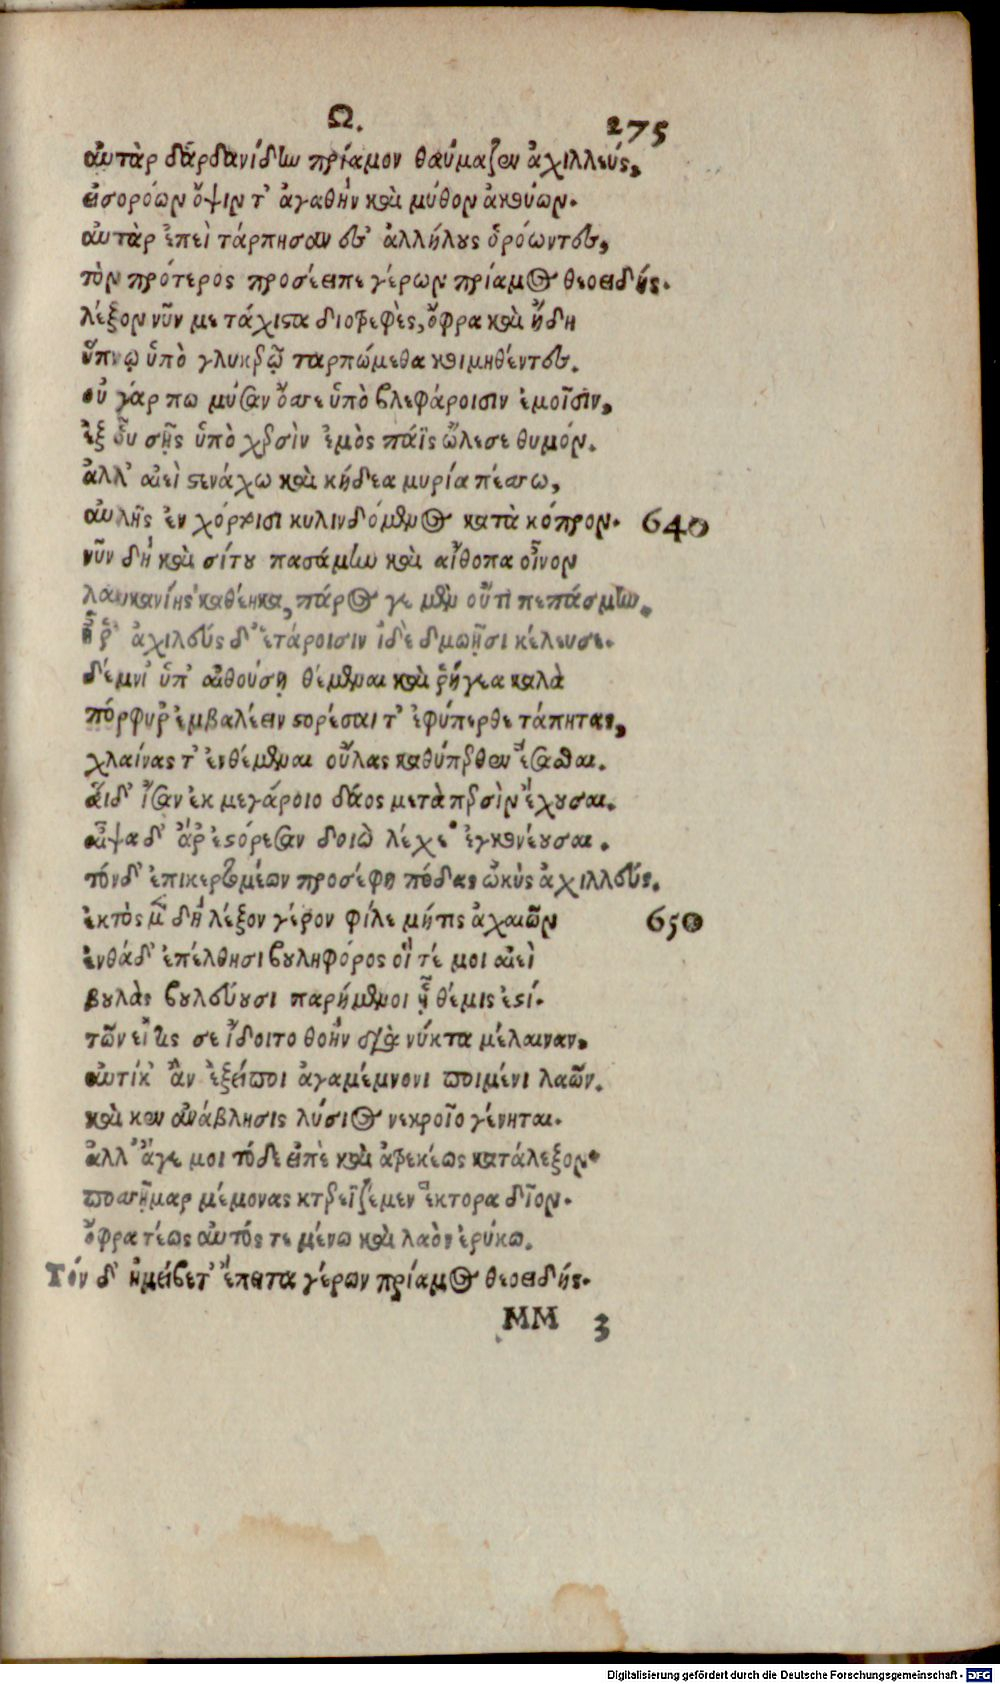 Ω.
275
αὐτὰρ δαρδανίδην πρίαμον θαύμαζεν ἀχιλλεύς,
εἰσορόων ὄψιν τ' ἀγαθὴν καὶ μύθον ἀκούων.
αὐτὰρ ἐπεὶ τάρπησαν ἐς ἀλλήλους ὁρόωντες,
τὸν πρότερος προσέειπε γέρων πρίαμος θεοειδής.
λέξον νῦν με τάχιστα διοτρεφὲς, ὄφρα καὶ ἤδη
ὕπνῳ ὑπὸ γλυκερῷ ταρπώμεθα κοιμηθέντες.
οὐ γάρ πω μύσαν ὄσσε ὑπὸ βλεφάροισιν ἐμοῖσιν,
ἐξ οὗ σῇς ὑπὸ χερσὶν ἐμὸς πάϊς ὤλεσε θυμόν.
ἀλλ' αἰεὶ στενάχω καὶ κήδεα μυρία πέσσω,
αὐλῆς ἐν χόρτοισι κυλινδόμενος κατὰ κόπρον. 640
νῦν δὴ καὶ σίτου πασάμην καὶ αἴθοπα οἶνον
λαυκανίης καθέηκα, πάρος γε μὲν οὔτι πεπάσμην.
ἦ ῥ' ἀχιλεὺς δ' ἑτάροισιν ἰδὲ δμωῇσι κέλευσε.
δέμνι' ὑπ' αἰθούσῃ θέμεναι καὶ ῥήγεα καλὰ
πόρφυρ' ἐμβαλέειν στορέσαι τ' ἐφύπερθε τάπητας,
χλαίνας τ' ἐνθέμεναι οὔλας καθύπερθεν ἕσασθαι.
αἱ δ' ἴσαν ἐκ μεγάροιο δάος μετὰ χερσὶν ἔχουσαι.
αἶψα δ' ἄρ' ἐστόρεσαν δοιὼ λέχε' ἐγκονέουσαι.
τόνδ' ἐπικερτομέων προσέφη πόδας ὠκὺς ἀχιλλεύς.
ἐκτὸς μὲν δὴ λέξον γέρον φίλε μήτις ἀχαιῶν 650
ἐνθάδ' ἐπέλθησι βουληφόρος οἵ τέ μοι αἰεὶ
βουλὰς βουλεύουσι παρήμενοι ᾗ θέμις ἐστί.
τῶν εἴ τίς σε ἴδοιτο θοὴν διὰ νύκτα μέλαιναν,
αὐτίκ' ἂν ἐξείποι ἀγαμέμνονι ποιμένι λαῶν.
καὶ κεν ἀνάβλησις λύσιος νεκροῖο γένηται.
ἀλλ' ἄγε μοι τόδε εἰπὲ καὶ ἀτρεκέως κατάλεξον.
ποσσῆμαρ μέμονας κτερεϊζέμεν ἕκτορα δῖον.
ὄφρα τέως αὐτός τε μένω καὶ λαὸν ἐρύκω.
Τὸν δ' ἠμείβετ' ἔπειτα γέρων πρίαμος θεοειδής.
MM 3
Digitalisierung gefördert durch die Deutsche Forschungsgemeinschaft - DFG